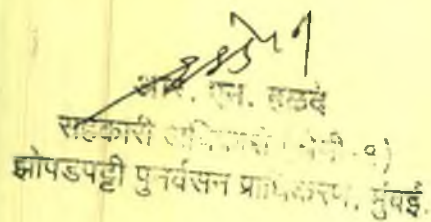 आर. एन. हळदे
सहकारी अधिकारी (श्रेणी-१)
झोपडपट्टी पुनर्वसन प्राधिकरण, मुंबई.